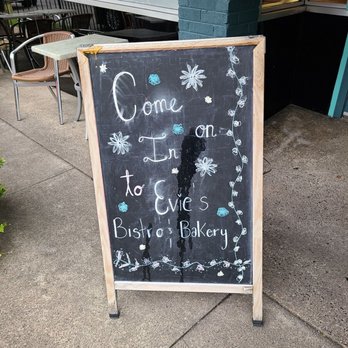 Come on
In
to Evie's
Bistro & Bakery